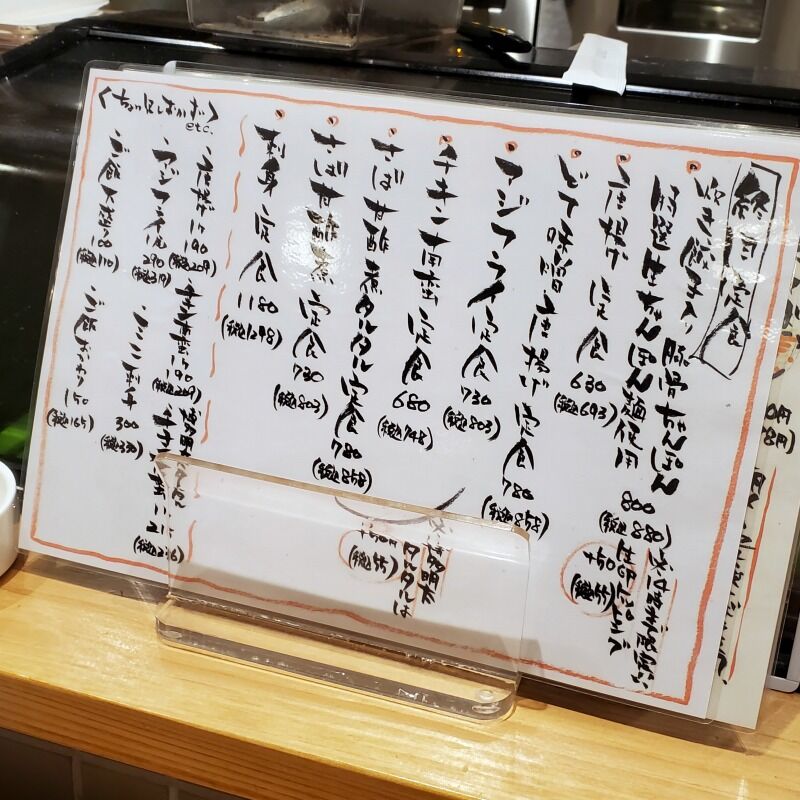 終日定食
焼き餃子入り 豚骨ちゃんぽん
生ちゃんぽん麺使用 800
(税込880)
+50
(税込55)
唐揚げ定食 630
(税込693)
どて味噌唐揚げ定食 780
(税込858)
アジフライ定食 730
(税込803)
チキン南蛮定食 680
(税込748)
さば甘酢煮タルタル定食 780
(税込858)
タルタルは
+50
(税込55)
さば甘酢煮定食 730
(税込803)
刺身定食 1180
(税込1298)
くちょこしおかず>
etc.
唐揚げ 190
(税込209)
190
(税込209)
アジフライ 290
(税込319)
ミニ刺身 300
(税込330)
(税込236)
ご飯大盛 100
(税込110)
ご飯おかわり 150
(税込165)